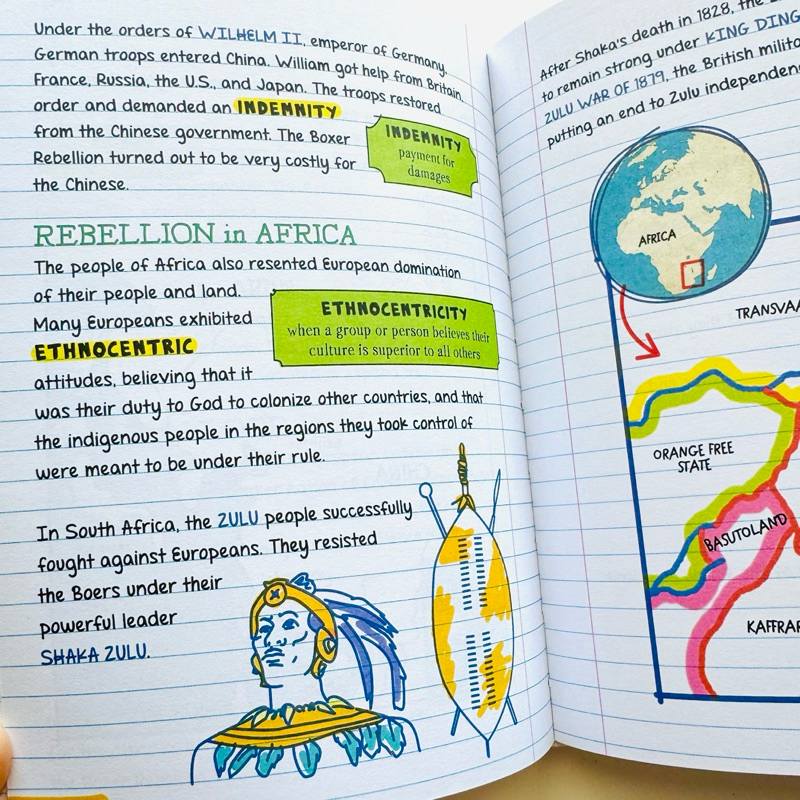 Under the orders of WILHELM II, emperor of Germany,
German troops entered China. William got help from Britain,
France, Russia, the U.S., and Japan. The troops restored
order and demanded an INDEMNITY
from the Chinese government. The Boxer
Rebellion turned out to be very costly for
the Chinese.
INDEMNITY
payment for
damages
REBELLION in AFRICA
The people of Africa also resented European domination
of their people and land.
Many Europeans exhibited
ETHNOCENTRIC
attitudes, believing that it
was their duty to God to colonize other countries, and that
the indigenous people in the regions they took control of
were meant to be under their rule.
ETHNOCENTRICITY
when a group or person believes their
culture is superior to all others
In South Africa, the ZULU people successfully
fought against Europeans. They resisted
the Boers under their
powerful leader
SHAKA ZULU.
After Shaka's death in 1828, the
to remain strong under KING
ZULU WAR OF 1879, the British
putting an end to Zulu
AFRICA
ORANGE FREE
STATE
BASUTOLAND